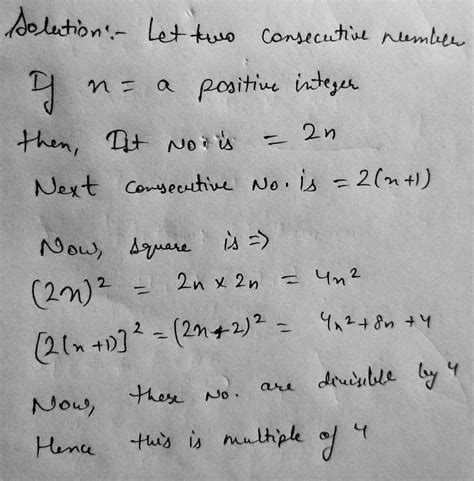 Solution:- Let two consecutive number
If n = a positive integer
then, Ist No. is = 2n
Next consecutive No. is = 2(n+1)
Now, square is =>
(2n)² = 2n × 2n = 4n²
[2(n+1)]² = (2n+2)² = 4n²+8n+4
Now, these No. are divisible by 4
Hence this is multiple of 4